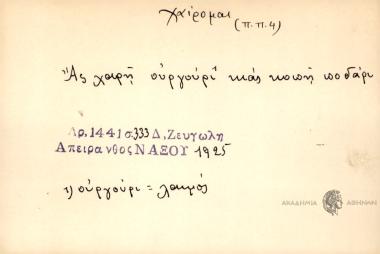 χαίρομαι
(π.π. 4)
Ἄς χαρῇ οὐργούρι¹ κιἀς κοπῇ ποδάρι
Αρ. 1441 σ. 333 Δ. Ζευγωλη
Απειρανθος ΝΑΞΟΥ 1925
1) οὐργούρι = λαιμός
ΑΚΑΔΗΜΙΑ ΑΘΗΝΩΝ